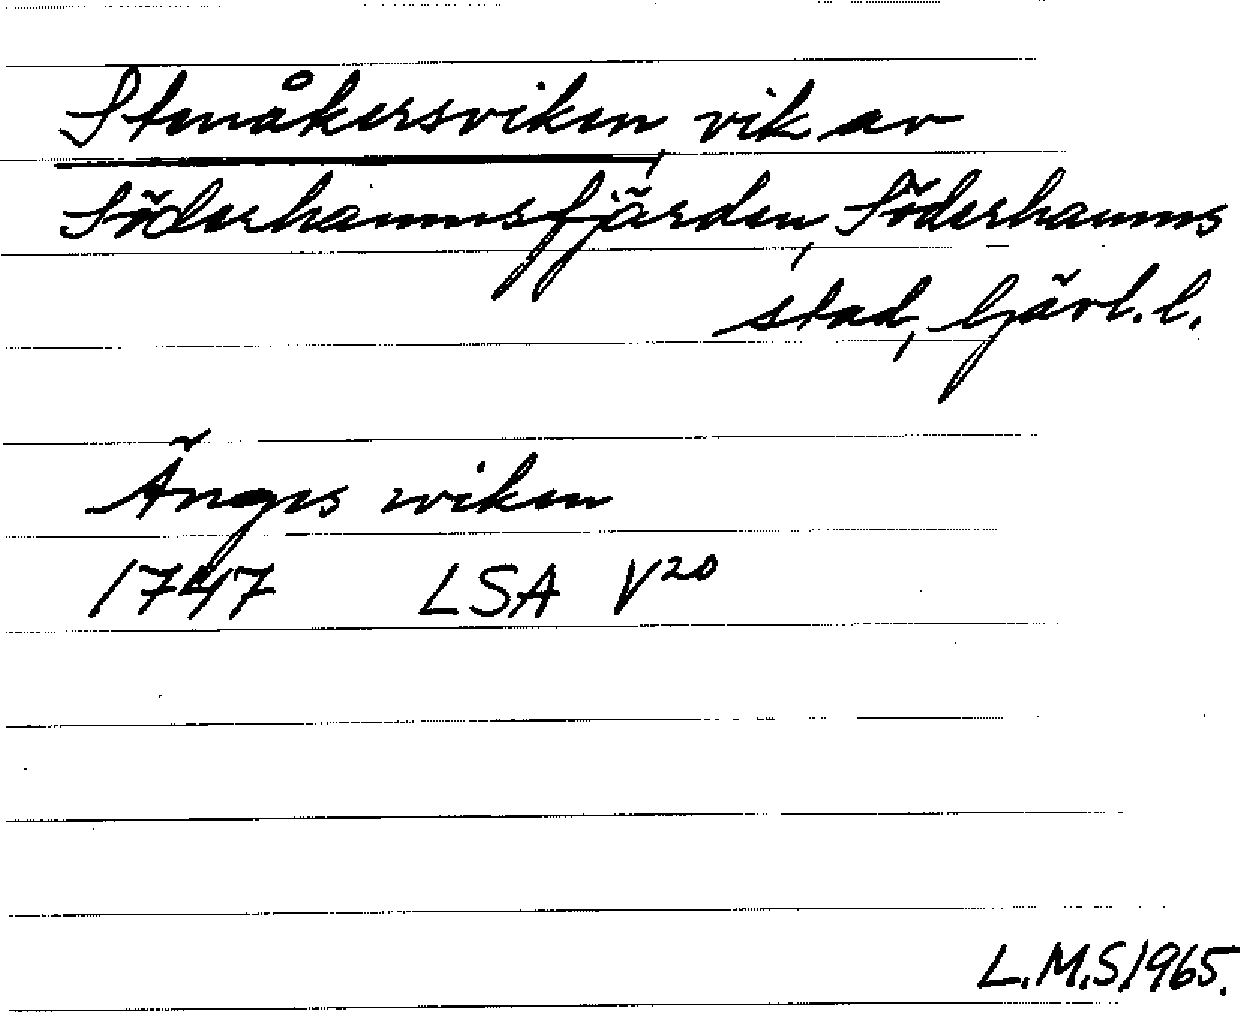 Stenåkersviken, vik av
Söderhamnsfjärden, Söderhamns
stad, Gävl. l.
Änges wiken
1747 LSA V20
L.M.S 1965.